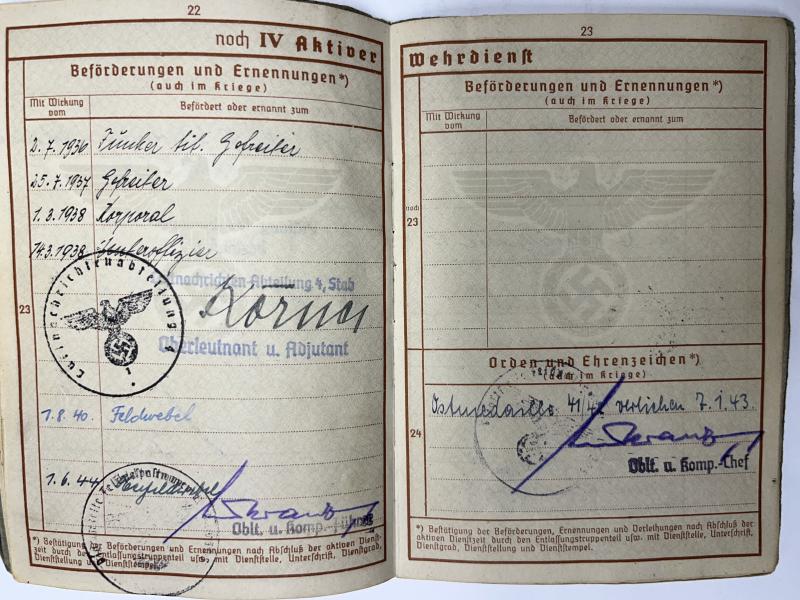 22
noch IV Aktiver
Beförderungen und Ernennungen*)
(auch im Kriege)
Mit Wirkung vom
Befördert oder ernannt zum
2.7.1936 Funker tit. Gefreiter
25.7.1937 Gefreiter
1.3.1938 Korporal
14.3.1938 Unteroffizier
nachrichten-Abteilung 4, Stab
23
Oberleutnant u. Adjutant
Luftnachrichtenabteilung
1.8.40. Feldwebel
1.6.44
Oblt. u. Komp.-Führer
*) Bestätigung der Beförderungen und Ernennungen nach Abschluß der aktiven Dienst-
zeit durch den Entlassungstruppenteil usw. mit Dienstgrad,
Dienststellung u. Dienststempel.
23
Wehrdienst
Beförderungen und Ernennungen*)
(auch im Kriege)
Mit Wirkung vom
Befördert oder ernannt zum
noch
23
Orden und Ehrenzeichen*)
(auch im Kriege)
Ostmedaille 41/42 verliehen 7.1.43.
24
Oblt. u. Komp.-Chef
*) Bestätigung der Beförderungen, Ernennungen und Verleihungen nach Abschluß der
aktiven Dienstzeit durch den Entlassungstruppenteil usw. mit Dienststelle, Unterschrift,
Dienstgrad, Dienststellung und Dienststempel.